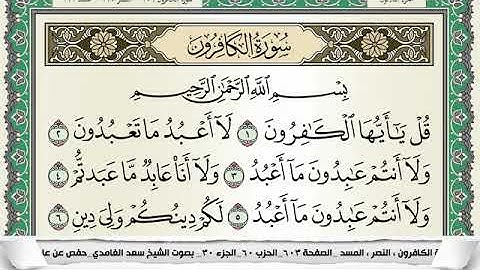 سُورَةُ الكَافِرُونَ
بِسْمِ اللَّهِ الرَّحْمَٰنِ الرَّحِيمِ
قُلْ يَٰٓأَيُّهَا ٱلْكَٰفِرُونَ ١ لَآ أَعْبُدُ مَا تَعْبُدُونَ ٢
وَلَآ أَنتُمْ عَٰبِدُونَ مَآ أَعْبُدُ ٣ وَلَآ أَنَا۠ عَابِدٌ مَّا عَبَدتُّمْ ٤
وَلَآ أَنتُمْ عَٰبِدُونَ مَآ أَعْبُدُ ٥ لَكُمْ دِينُكُمْ وَلِىَ دِينِ ٦
الكافرون ، النصر ، المسد _ الصفحة ٦٠٣_ الحزب ٦٠_ الجزء ٣٠_ بصوت الشيخ سعد الغامدي_ حفص عن